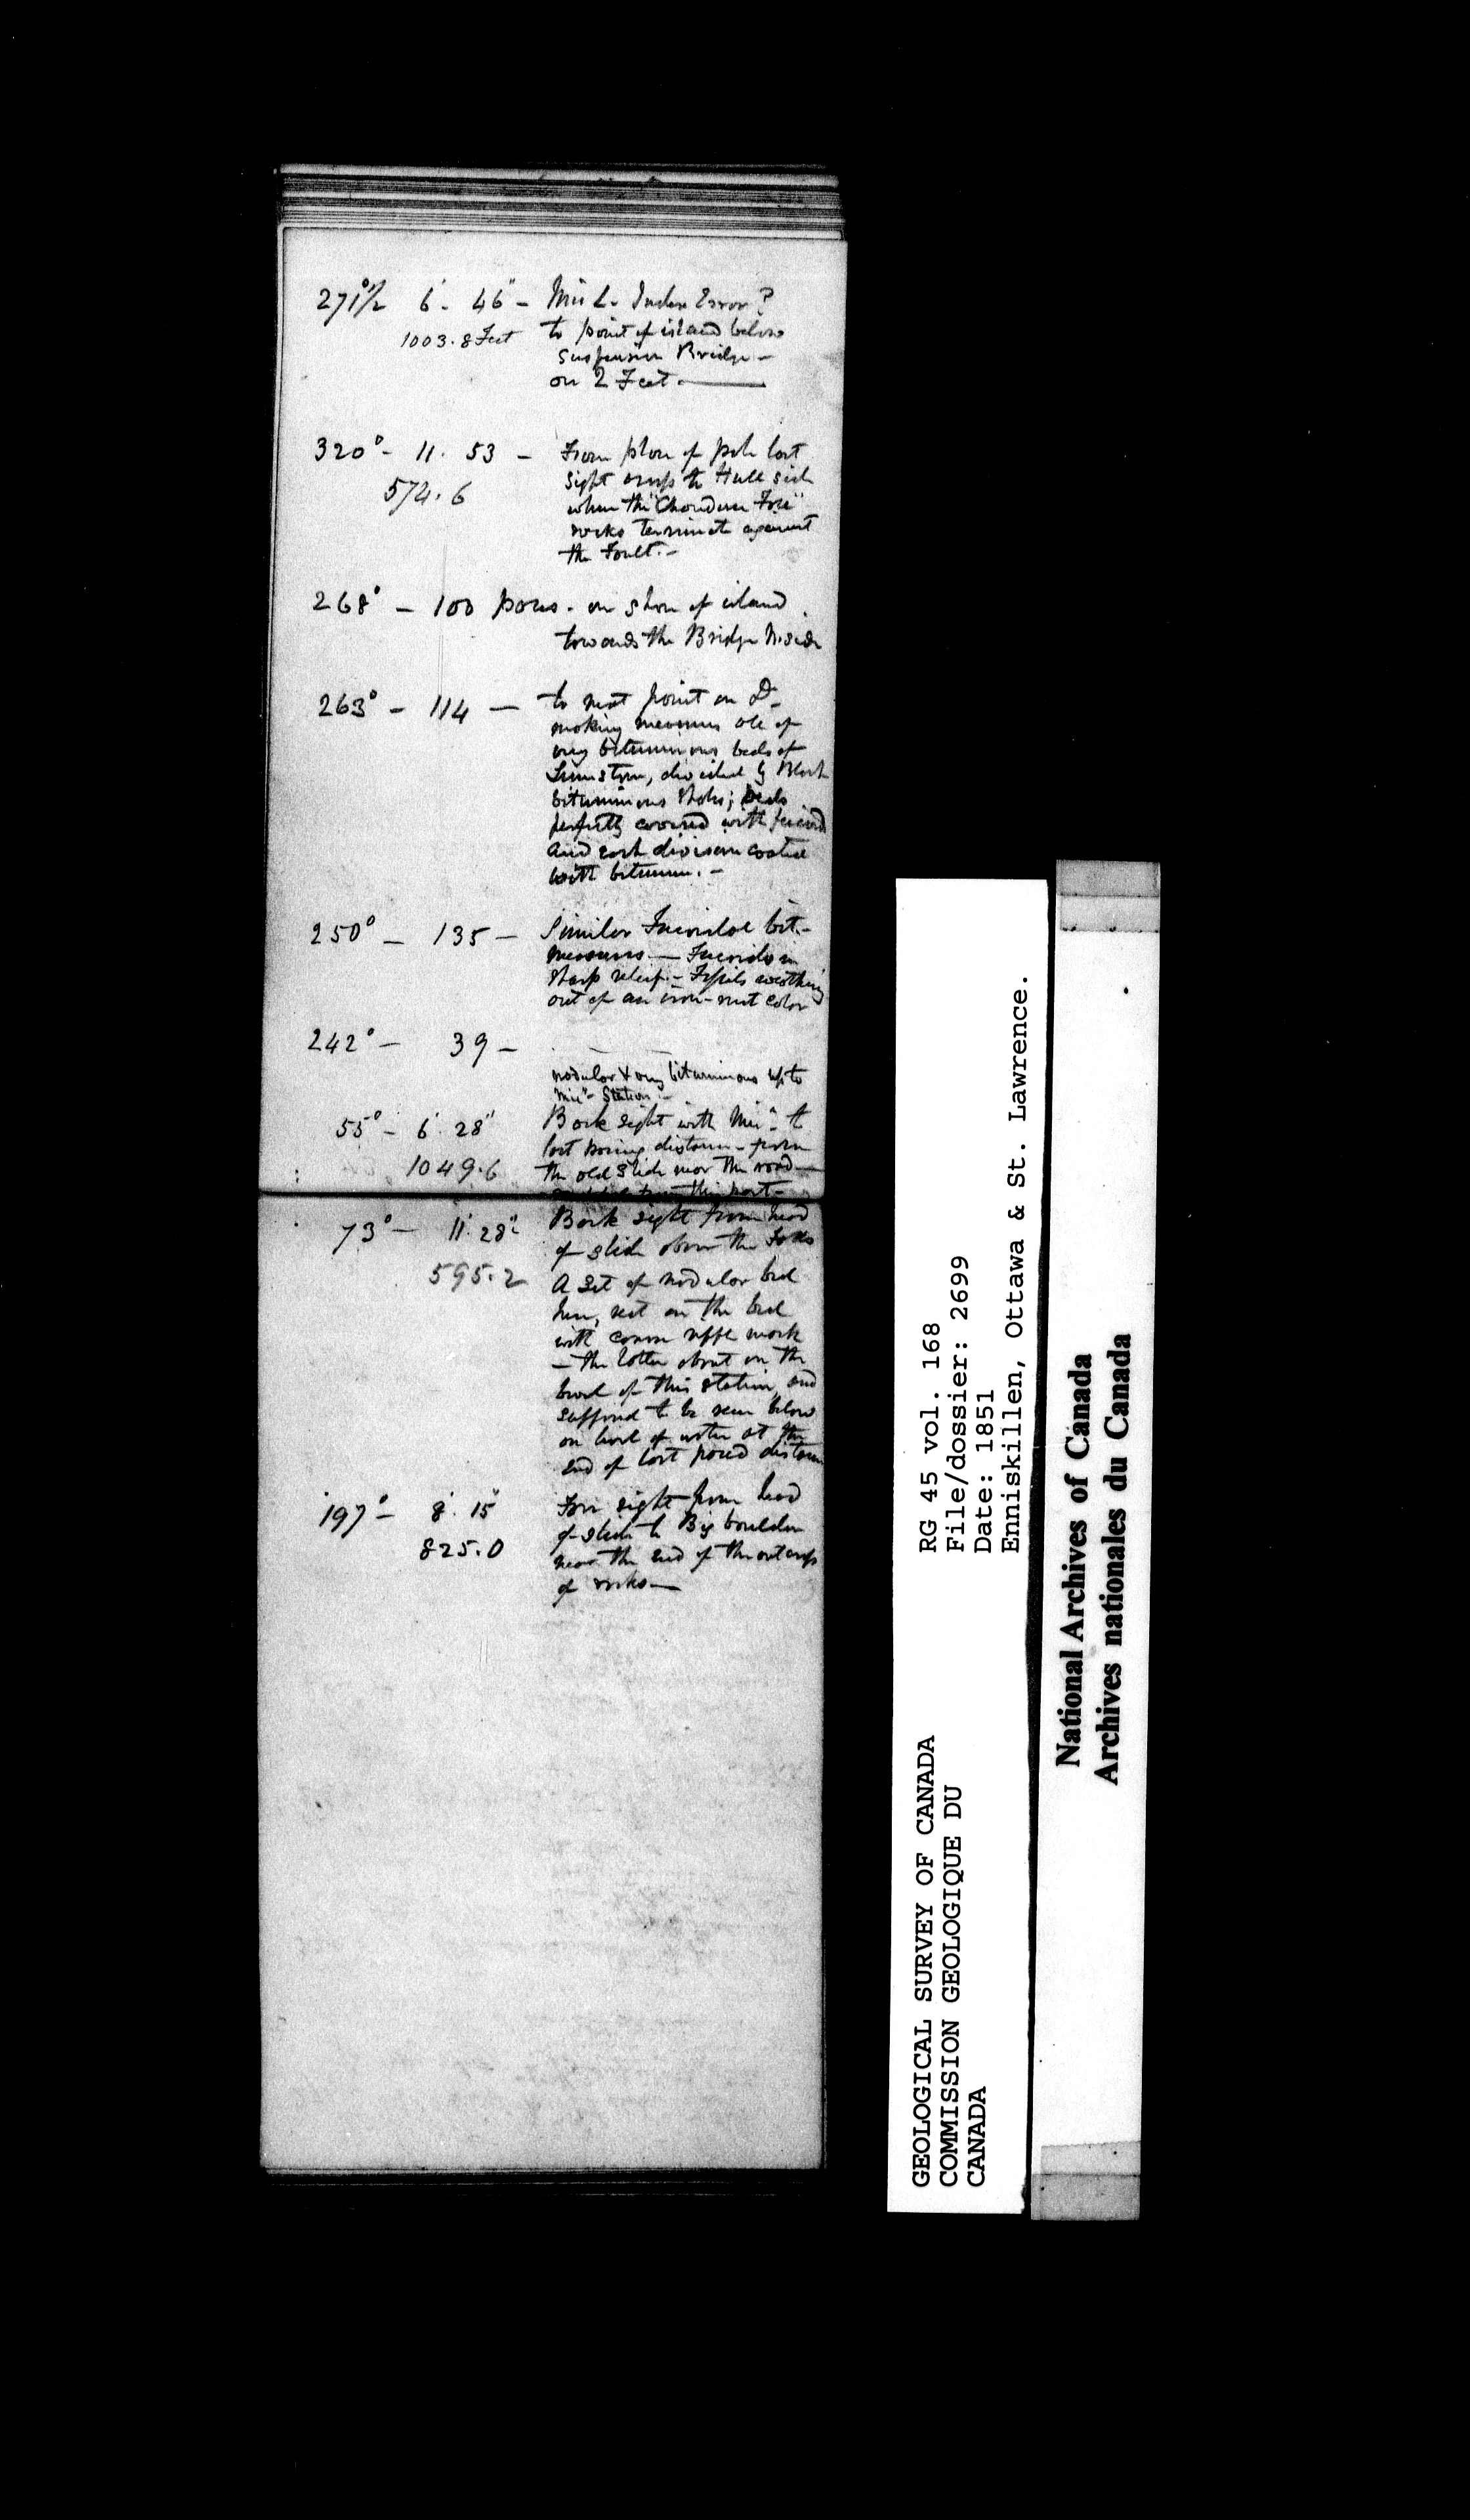 271°½ 6'. 46" – Mic L. Index Error?
1003.8 Feet to point of island below
Suspension Bridge –
on 2 Feet. —
320° – 11. 53 – From place of pole last
574.6 sight across to Hull side
when the "Chaudiere Free"
rocks terminate against
the Fault. –
268° – 100 paces. on shore of island
towards the Bridge N. side
263° – 114 — to next point on Do
making measures all of
very bituminous beds of
Limestone, divided by Black
bituminous shales; beds
perfectly covered with fucoids
and each division coated
with bitumen. –
250° – 135 – Similar Fucoidal bit. –
measures — Fucoids in
sharp relief – Fossils weathering
out of an iron-rust color
242° – 39 –
nodular & very bituminous up to
Mic" – Station –
55° – 6'. 28" Back sight with Mic" – to
1049.6 last pacing distance – from
the old slide near the road —
this part –
73° – 11'. 28" Back sight from head
595.2 of slide above the Falls
A set of nodular bed
here, rest on the bed
with coarse ripple mark
– the latter about on the
level of this station, and
supposed to be seen below
on level of water at the
end of last paced distance
197° – 8'. 15" Fore sight from head
825.0 of slide to Big boulder
near the end of the outcrop
of rocks —
RG 45 vol. 168
File/dossier: 2699
Date: 1851
Enniskillen, Ottawa & St. Lawrence.
GEOLOGICAL SURVEY OF CANADA
COMMISSION GEOLOGIQUE DU
CANADA
National Archives of Canada
Archives nationales du Canada